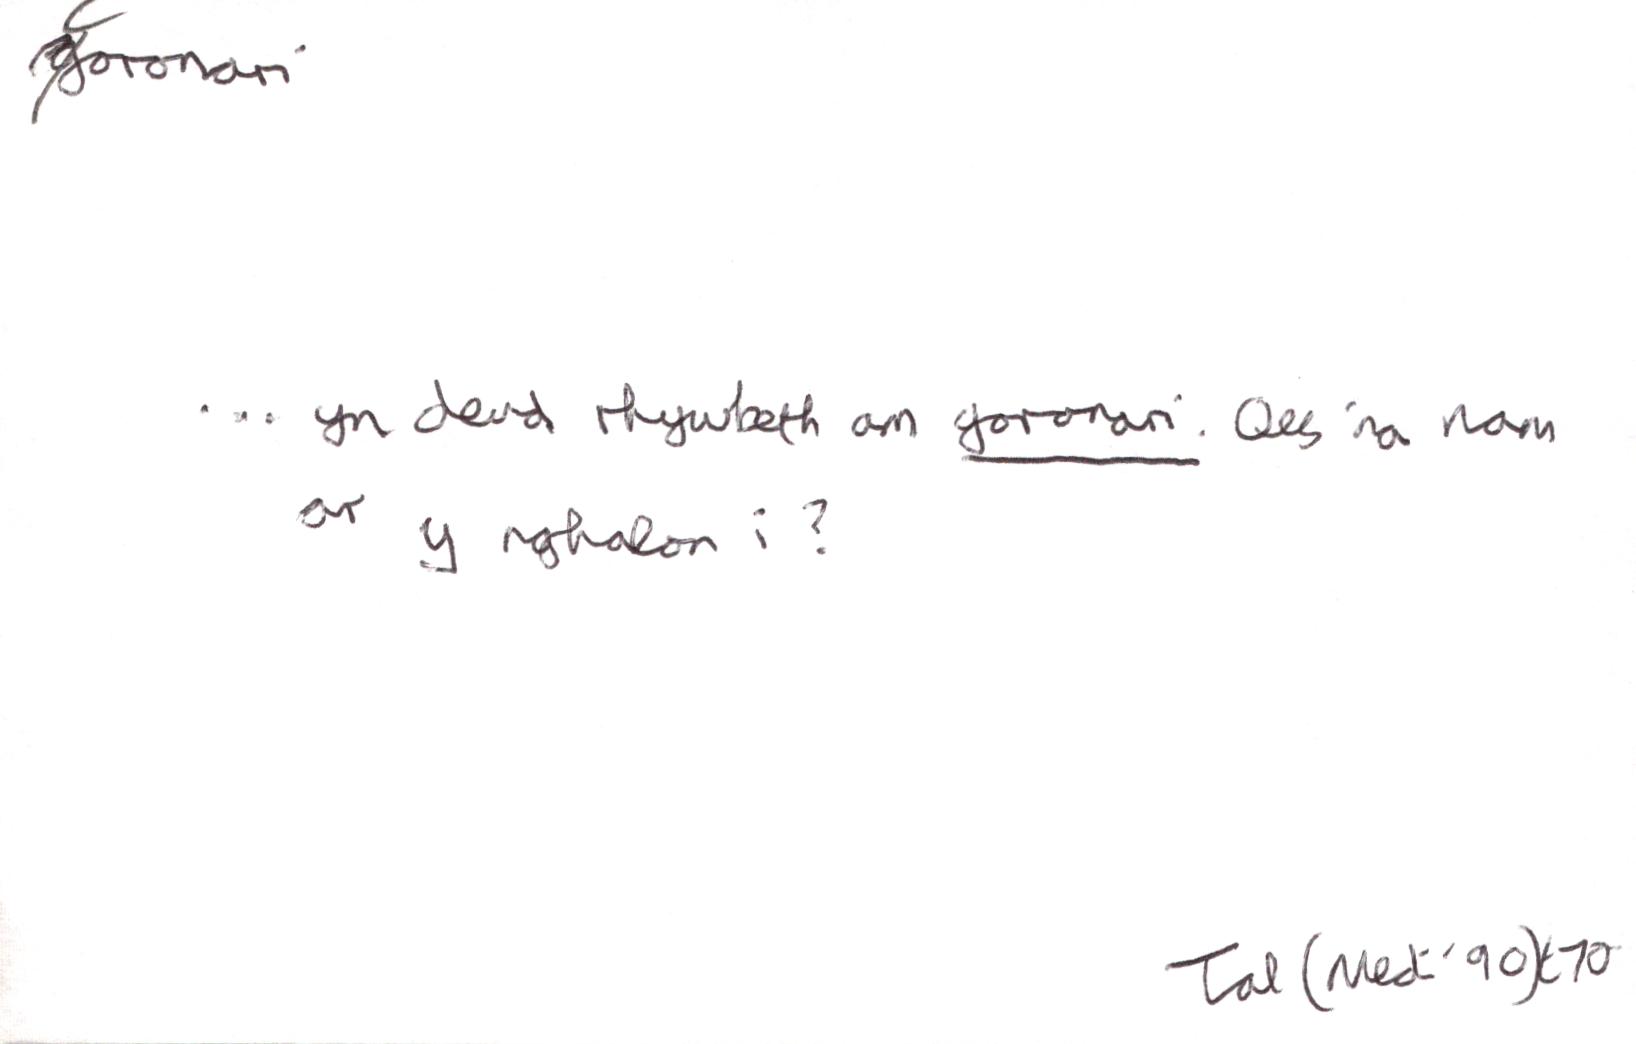 goronari
... yn deud rhywbeth am goronari. Oes 'na nam
ar y nghalon i?
Tal (Med '90) t70